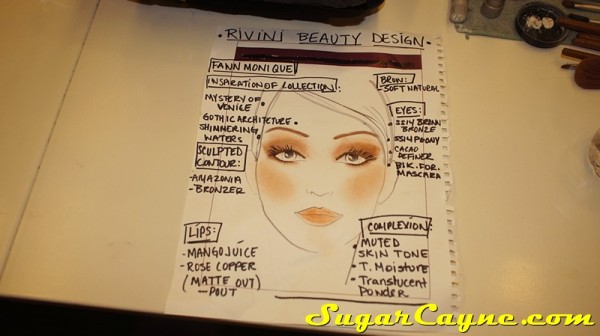 • RIVINI BEAUTY DESIGN •
FANN MONIQUE
INSPIRATION OF COLLECTION:
MYSTERY OF VENICE
GOTHIC ARCHITECTURE
SHIMMERING WATERS
SCULPTED CONTOUR:
- AMAZONIA
- BRONZER
LIPS:
- MANGO JUICE
- ROSE COPPER
(MATTE OUT)
- POUT
BROW:
- SOFT NATURAL
EYES:
SS14 BROWN BRONZE
SS14 PEONY
CACAO DEFINER
BLK. FOR. MASCARA
COMPLEXION:
- MUTED SKIN TONE
- T. Moisture
- Translucent POWDER
SugarCayne.com